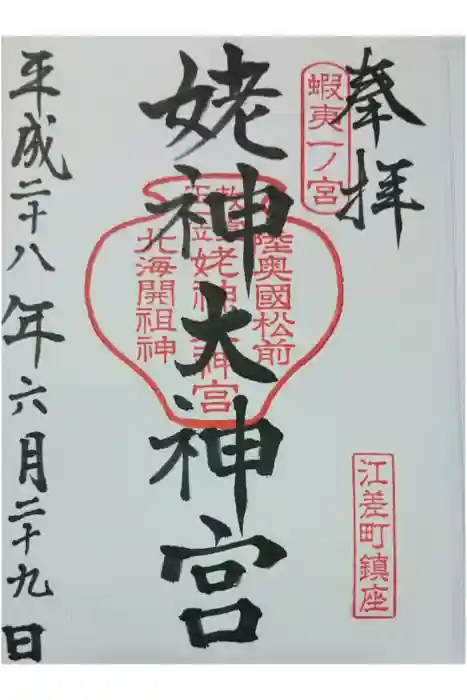 奉拝
蝦夷一ノ宮
姥神大神宮
陸奥國松前
北海開祖神
江差町鎮座
平成二十八年六月二十九日